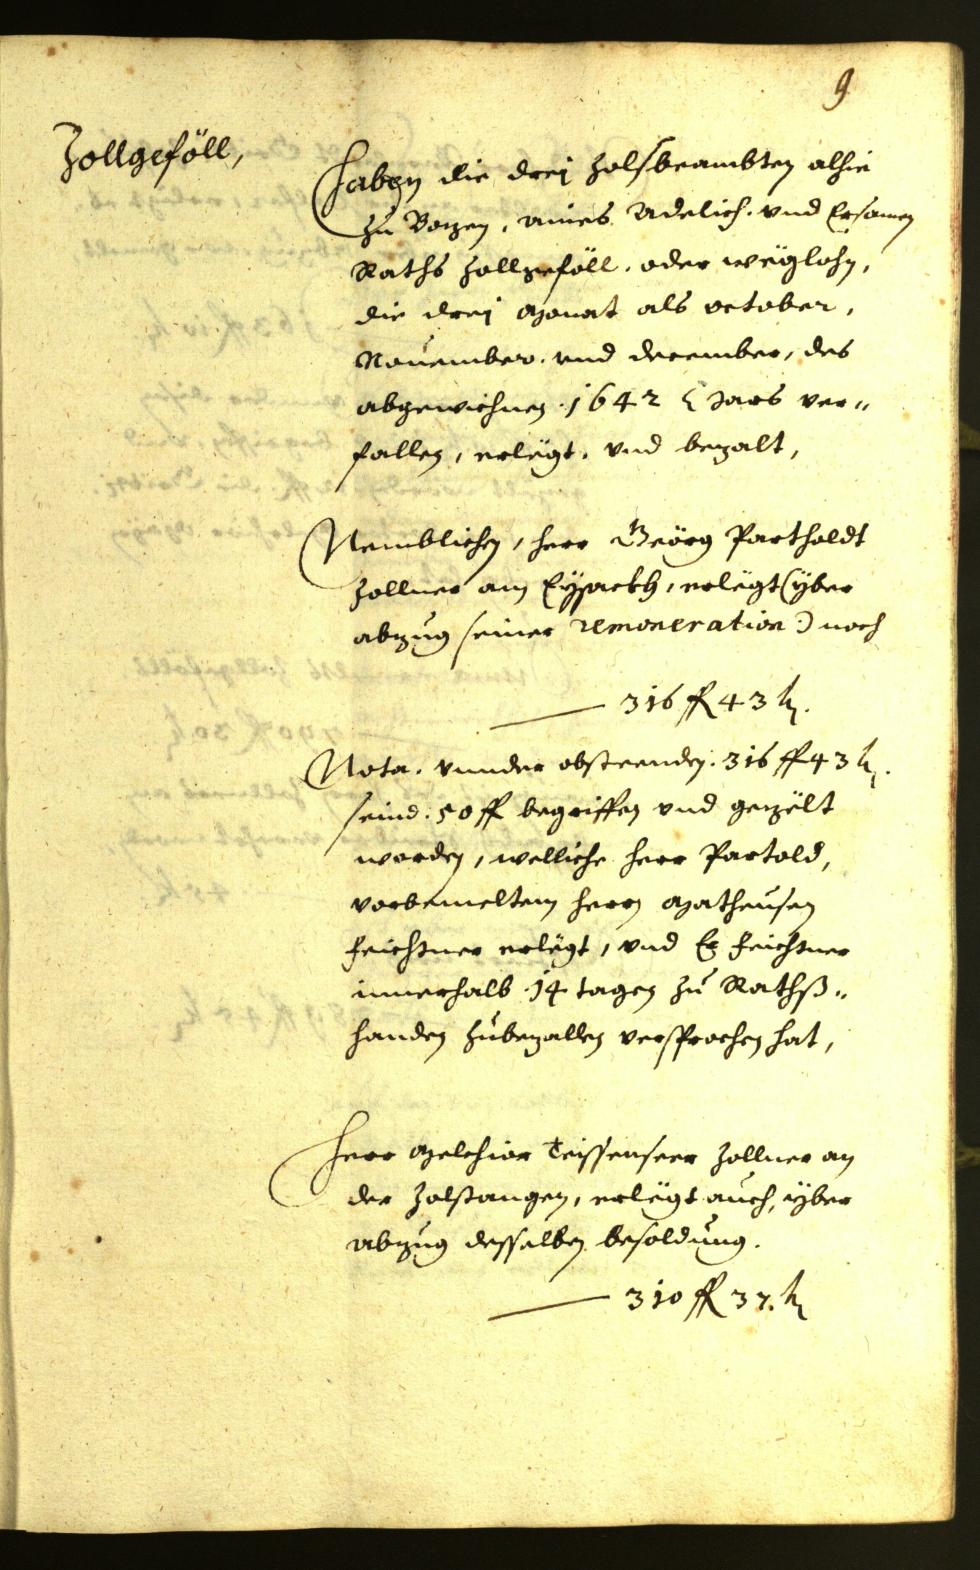 9
Zollgeföll,
Haben die drej Zolsbeambten alhie
zu Bozen, aines Adelich. vnd Ersamen
Raths Zollgeföll, oder wëglohn,
die drej Monat als October,
Nouember, vnd December, des
abgewichnen 1642 Jars ver„
fallen, erlëgt, vnd bezalt,
Nemblichen, herr Geörg Partholdt
Zollner am Eysackh, erlëgt (yber
abzug seiner remoneration) noch
316 fl 43 kr.
Nota. vnnder obsteenden. 316 fl 43 kr.
seind. 50 fl begriffen vnd gezëlt
worden, welliche herr Partold,
vorbemeltem herrn Matheusen
Feichtner erlëgt, vnd Er Feichtner
innerhalb 14 tagen zu Rathß„
handen zubezallen versprochen hat,
Herr Melchior Teissenseer Zollner an
der Zolstangen, erlëgt auch, yber
abzug desselben besoldung.
310 fl 37. kr